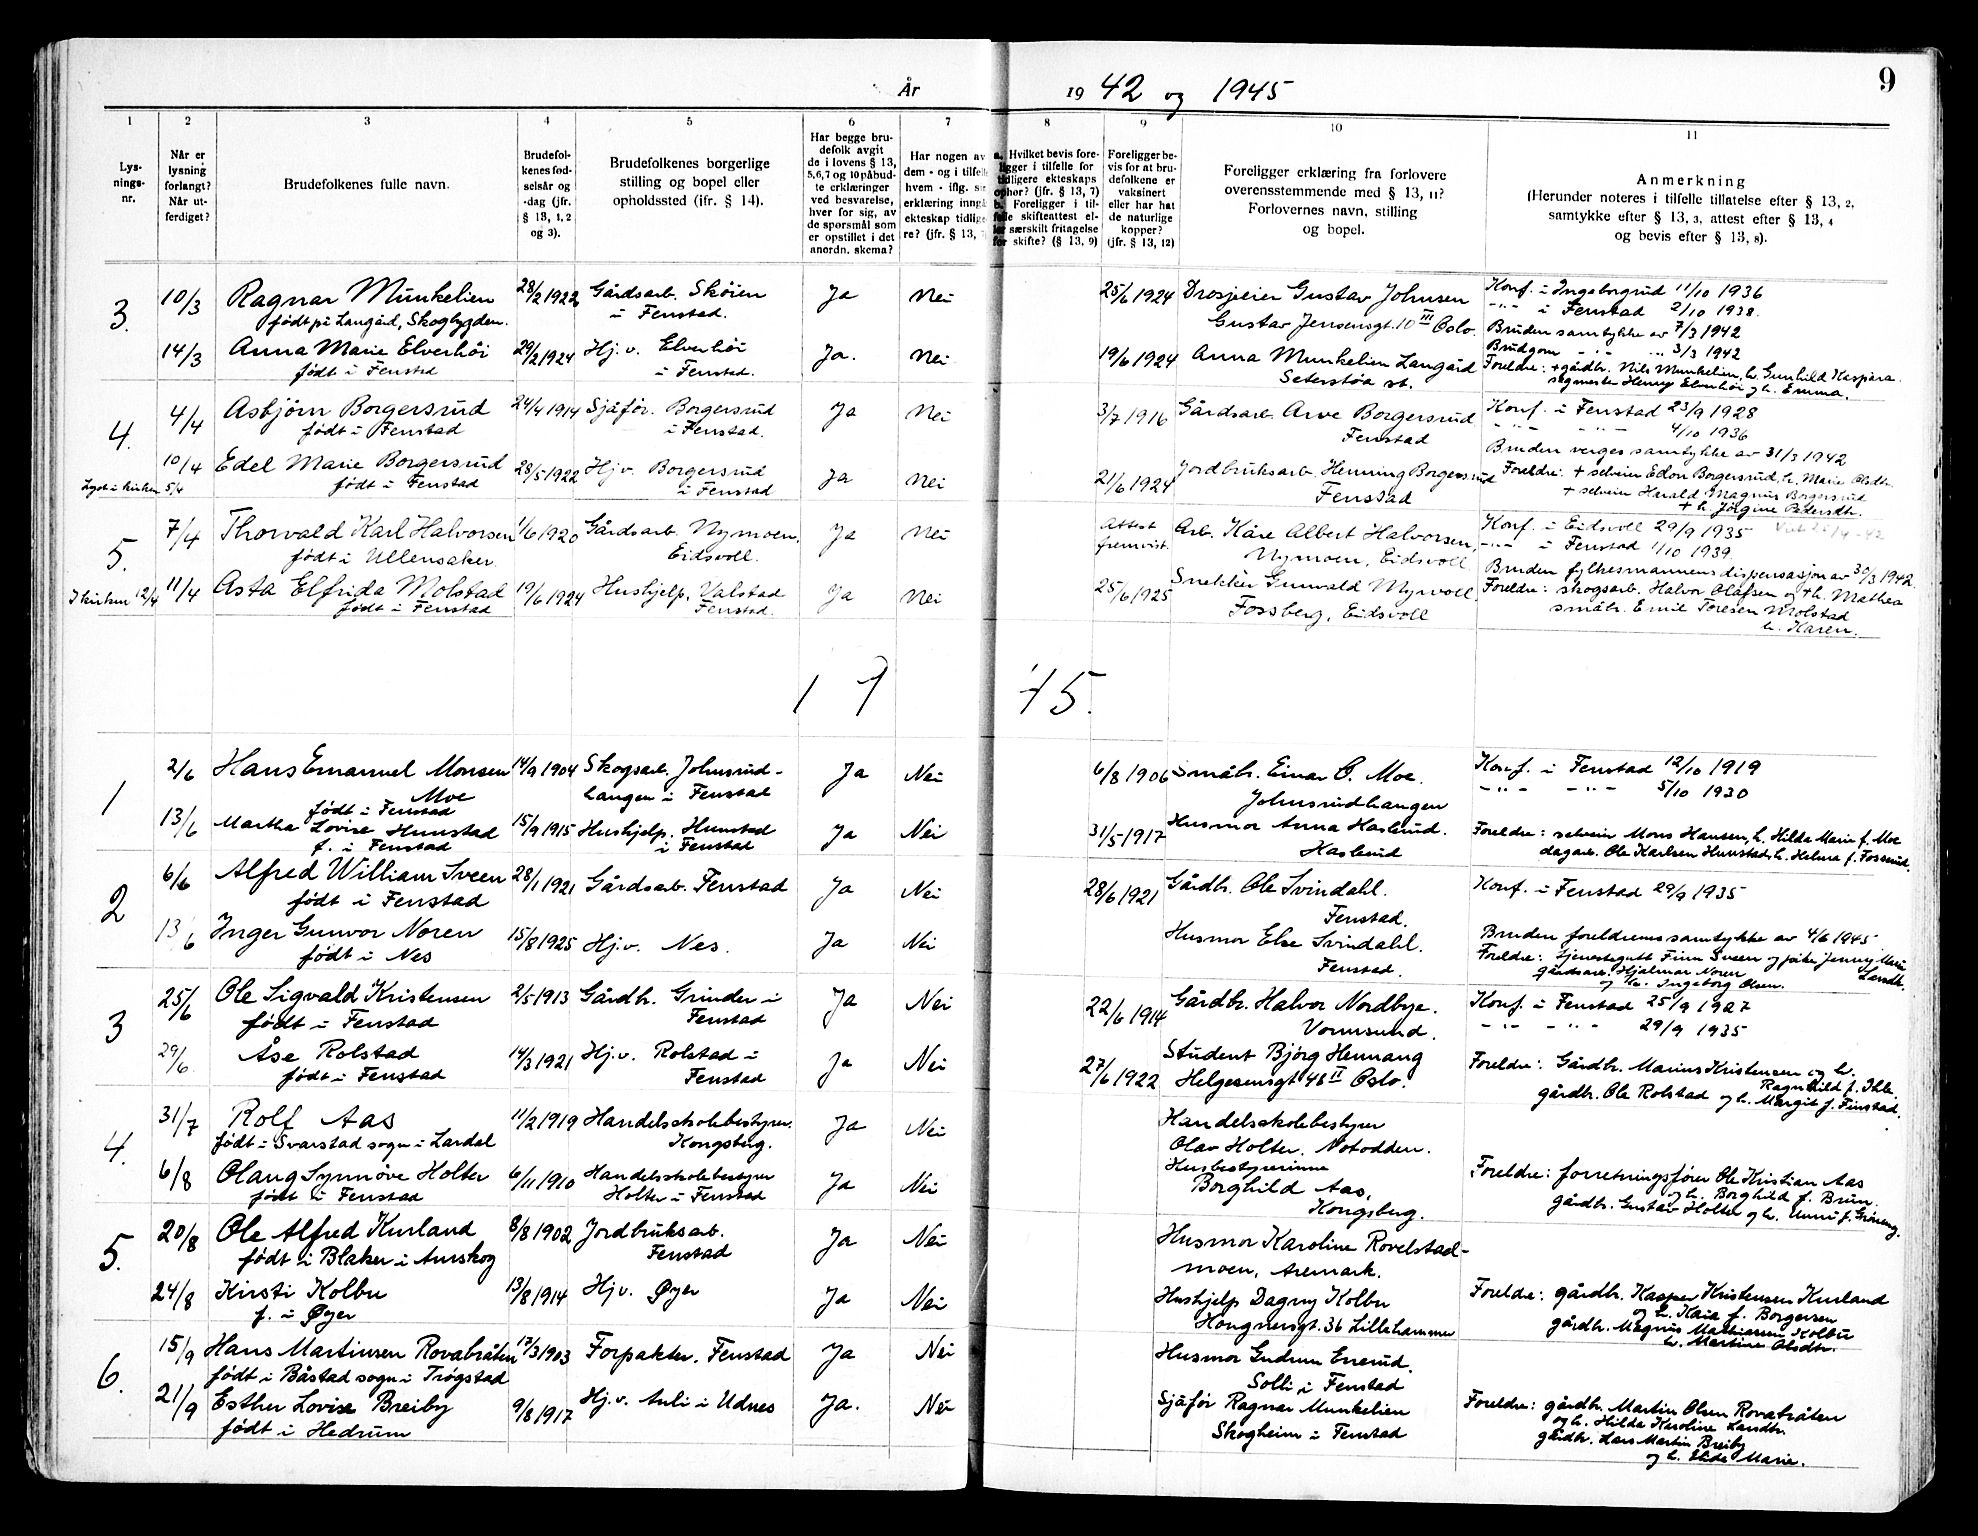 År 1942 og 1945
9
1 2 3 4 5 6 7 8 9 10 11
Lys-
nings-
nr.
Når er
lysning
forlangt?
Når ut-
ferdiget?
Brudefolkenes fulle navn.
Brudefol-
kenes fød-
selsår og
-dag (jfr.
§ 13, 1, 2
og 3).
Brudefolkenes borgerlige
stilling og bopel eller
opholdssted (jfr. § 14).
Har begge bru-
defolk avgit
de i lovens § 13,
5,6,7 og 10 påbud-
te erklæringer
ved besvarelse,
hver for sig, av
de spørsmål som
er opstillet i det
anordn. skema?
Har nogen av
dem - og i tilfelle
hvem - iflg.
erklæring inngå
ekteskap tidlige-
re? (jfr. § 13,
a. Hvilket bevis fore-
ligger i tilfelle for
tidligere ekteskaps
ophør? (jfr. § 13, 7)
b. Foreligger i til-
felle skifteattest el-
ler særskilt fritagelse
for skifte? (§ 13, 9)
Foreligger be-
vis for at bru-
defolkene er
vaksinert
eller har hat
de naturlige
kopper?
(jfr. § 13, 12)
Foreligger erklæring fra forlovere
overensstemmende med § 13, 11?
Forlovernes navn, stilling
og bopel.
Anmerkning
(Herunder noteres i tilfelle tillatelse efter § 13, 2,
samtykke efter § 13, 3, attest efter § 13, 4
og bevis efter § 13, 8).
3. 10/3 Ragnar Munkelien 28/2 1922 Gårdsarb. Skøien Ja Nei 25/6 1924 Drosjeeier Gustav Johnsen Konf. i Ingeborgrud 11/10 1936
født på Langård, Skogbygden. i Fenstad. Gustav Jensensgt. 10 III Oslo. -"- i Fenstad 2/10 1938.
Bruden samtykke av 7/3 1942
14/3 Anna Marie Elverhøi 29/2 1924 Hj. v. Elverhøi Ja. Nei 19/6 1924 Anna Munkelien Langård Brudgom -"- 3/3 1942
født i Fenstad i Fenstad. Seterstøa st. Foreldre: + gårdbr. Nils Munkelien, h. Gunhild Kaspara.
sagmester Henry Elverhøi og h. Emma.
4. 4/4 Asbjørn Borgersrud 24/4 1914 Sjåfør. Borgersrud Ja Nei 3/7 1916 Gårdsarb. Arve Borgersrud Konf. i Fenstad 23/9 1928
født i Fenstad i Fenstad. Fenstad -"- -"- 4/10 1936
Bruden verges samtykke av 31/3 1942
10/4 Edel Marie Borgersrud 28/5 1922 Hj. v. Borgersrud Ja Nei 21/6 1924 Jordbruksarb. Henning Borgersrud Foreldre: + selveier Edon Borgersrud, h. Marie Olsdtr.
Lyst i kirken 5/4 født i Fenstad i Fenstad Fenstad + selveier Harald Magnus Borgersrud
+ h. Jørgine Petersdtr.
5. 7/4 Thorvald Karl Halvorsen 1/6 1920 Gårdsarb. Nymoen, Ja Nei Attest Arb. Kåre Albert Halvorsen, Konf. i Eidsvoll 29/9 1935
født i Ullensaker Eidsvoll. fremvist. Nymoen, Eidsvoll -"- i Fenstad 1/10 1939.
Bruden fylkesmannens dispensasjon av 30/3 1942.
I kirken 12/4 11/4 Asta Elfrida Molstad 19/6 1924 Hushjelp, Valstad Ja Nei 25/6 1925 Snekker Gunvald Myrvoll, Foreldre: skogsarb. Halvor Olafsen og + h. Mathea
født i Fenstad Fenstad. Fossberg, Eidsvoll småbr. Emil Toresen Molstad
h. Karen.
1945.
1 2/6 Hans Emanuel Monsen 14/9 1904 Skogsarb. Johnsrud- Ja Nei 6/8 1906 Småbr. Einar O. Moe. Konf. i Fenstad 12/10 1919
Moe hangen i Fenstad Johnsrudhangen -"- -"- 5/10 1930
født i Fenstad
13/6 Martha Lovise Hunstad 15/9 1915 Hushjelp. Hunstad Ja Nei 31/5 1917 Husmor Anna Haslund. Foreldre: selveier Mons Hansen, h. Hilda Marie f. Moe
f. i Fenstad i Fenstad Haslund dagarb. Ole Karlsen Hunstad, h. Helene f. Fosserud.
2 6/6 Alfred William Sveen 28/1 1921 Gårdsarb. Fenstad Ja Nei 28/6 1921 Gårdbr. Ole Svindahl. Konf. i Fenstad 29/9 1935
født i Fenstad Fenstad.
13/6 Inger Gunvor Noren 15/8 1925 Hj.v. Nes. Ja Nei Husmor Else Svindahl. Bruden foreldrenes samtykke av 4/6 1945.
født i Nes Fenstad. Foreldre: tjenestegutt Finn Sveen og pike Jenny Marie Landh.
gårdsarb. Hjalmar Noren
og h. Ingeborg Olsen.
3 25/6 Ole Sigvald Kristensen 2/5 1913 Gårdbr. Grinder i Ja Nei 22/6 1914 Gårdbr. Halvor Nordbye. Konf. i Fenstad 25/9 1927
født i Fenstad Fenstad Vormsund. -"- -"- 29/9 1935
29/6. Åse Rolstad 14/3 1921 Hj.v. Rolstad i Ja Nei 27/6 1922 Student Bjørg Hennang Foreldre: Gårdbr. Marius Kristensen og h.
født i Fenstad Fenstad Helgesensgt 48 II Oslo. Ragnhild f. Ihle.
gårdbr. Ole Rolstad og h. Margit f. Finstad.
4. 31/7 Rolf Aas 11/2 1919 Handelsskolebestyrer. Ja Nei Handelsskolebestyrer
født i Svarstad sogn i Lardal Kongsberg. Olav Holter. Notodden.
6/8 Olaug Synnøve Holter 6/11 1910 Handelsskolebestyrer Ja Nei Husbestyrerinne Foreldre: forretningsfører Ole Kristian Aas
født i Fenstad Holter i Fenstad Borghild Aas, og h. Borghild f. Brun.
Kongsberg. gårdbr. Gustav Holter og h. Unni f.
5. 20/8 Ole Alfred Kurland 8/8 1902 Jordbruksarb. Ja Nei Husmor Karoline Rovelstad-
født i Blaker i Aurskog Fenstad moen, Aremark.
24/8 Kirsti Kolbu 13/8 1914 Hj.v. Øyer Ja Nei Hushjelp Dagny Kolbu Foreldre: gårdbr. Kasper Kristensen Kurland
f. i Øyer Hougnersgt. 36 Lillehammer og h. Kaia f. Borgersen
gårdbr. Magnus Mathiassen Kolbu
h. Martine Olsdtr.
6. 15/9 Hans Martinsen Rovabråten 17/3 1903 Forpakter. Fenstad Ja Nei Husmor Gudrun Enerud.
født i Båstad sogn i Trøgstad Solli i Fenstad
21/9 Esther Lovise Breiby 9/8 1917 Hj.v. Auli i Udnes Ja. Nei Sjåfør Ragnar Munkelien Foreldre: gårdbr. Martin Olsen Rovabråten
født i Hedrum Skogheim i Fenstad og h. Hilda Karoline Larsdtr.
gårdbr. Lars Martin Breiby
og h. Hilda Marie.